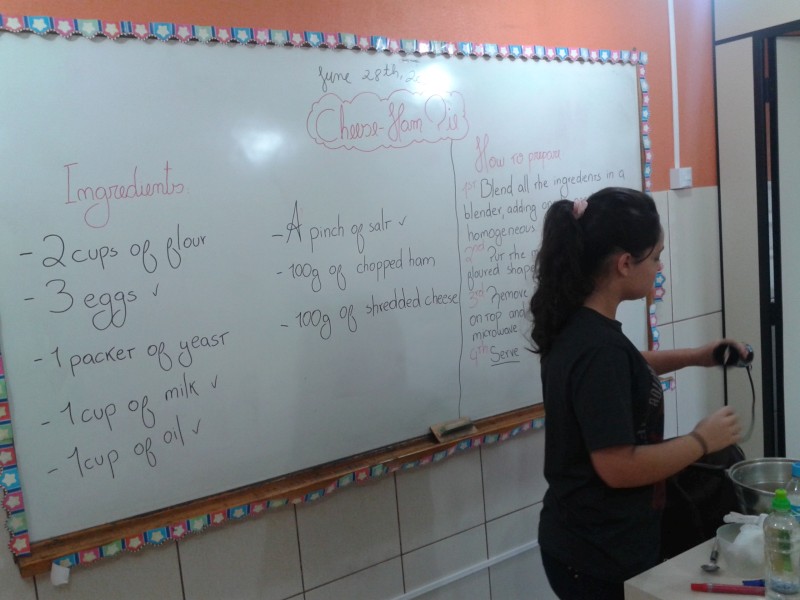 June 28th,
Cheese-Ham Pie
Ingredients
- 2 cups of flour
- 3 eggs ✓
- 1 packet of yeast
- 1 cup of milk ✓
- 1 cup of oil ✓
- A pinch of salt ✓
- 100g of chopped ham
- 100g of shredded cheese
How to prepare
1st Blend all the ingredients in a
blender, adding
homogeneous
2nd Put the
gloured
3rd Remove
on top and
microwave
4th Serve